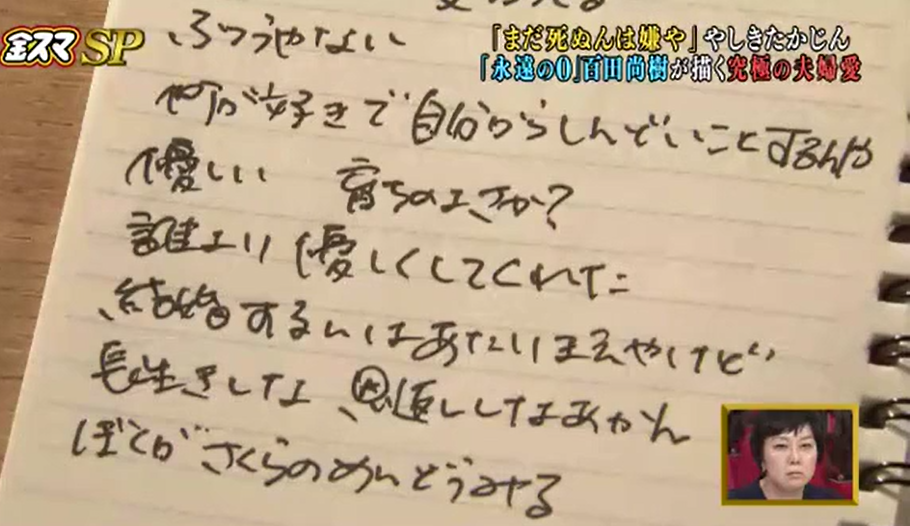 金スマSP
「まだ死ぬんは嫌や」やしきたかじん
「永遠の0」百田尚樹が描く究極の夫婦愛
ふつうやない
何が好きで 自分からしんどいことするんや
優しい 育ちのよさか?
誰より優しくしてくれた
結婚するんはあたりまえやけど
長生きしな、恩返ししなあかん
ぼくが さくらのめんどうみる